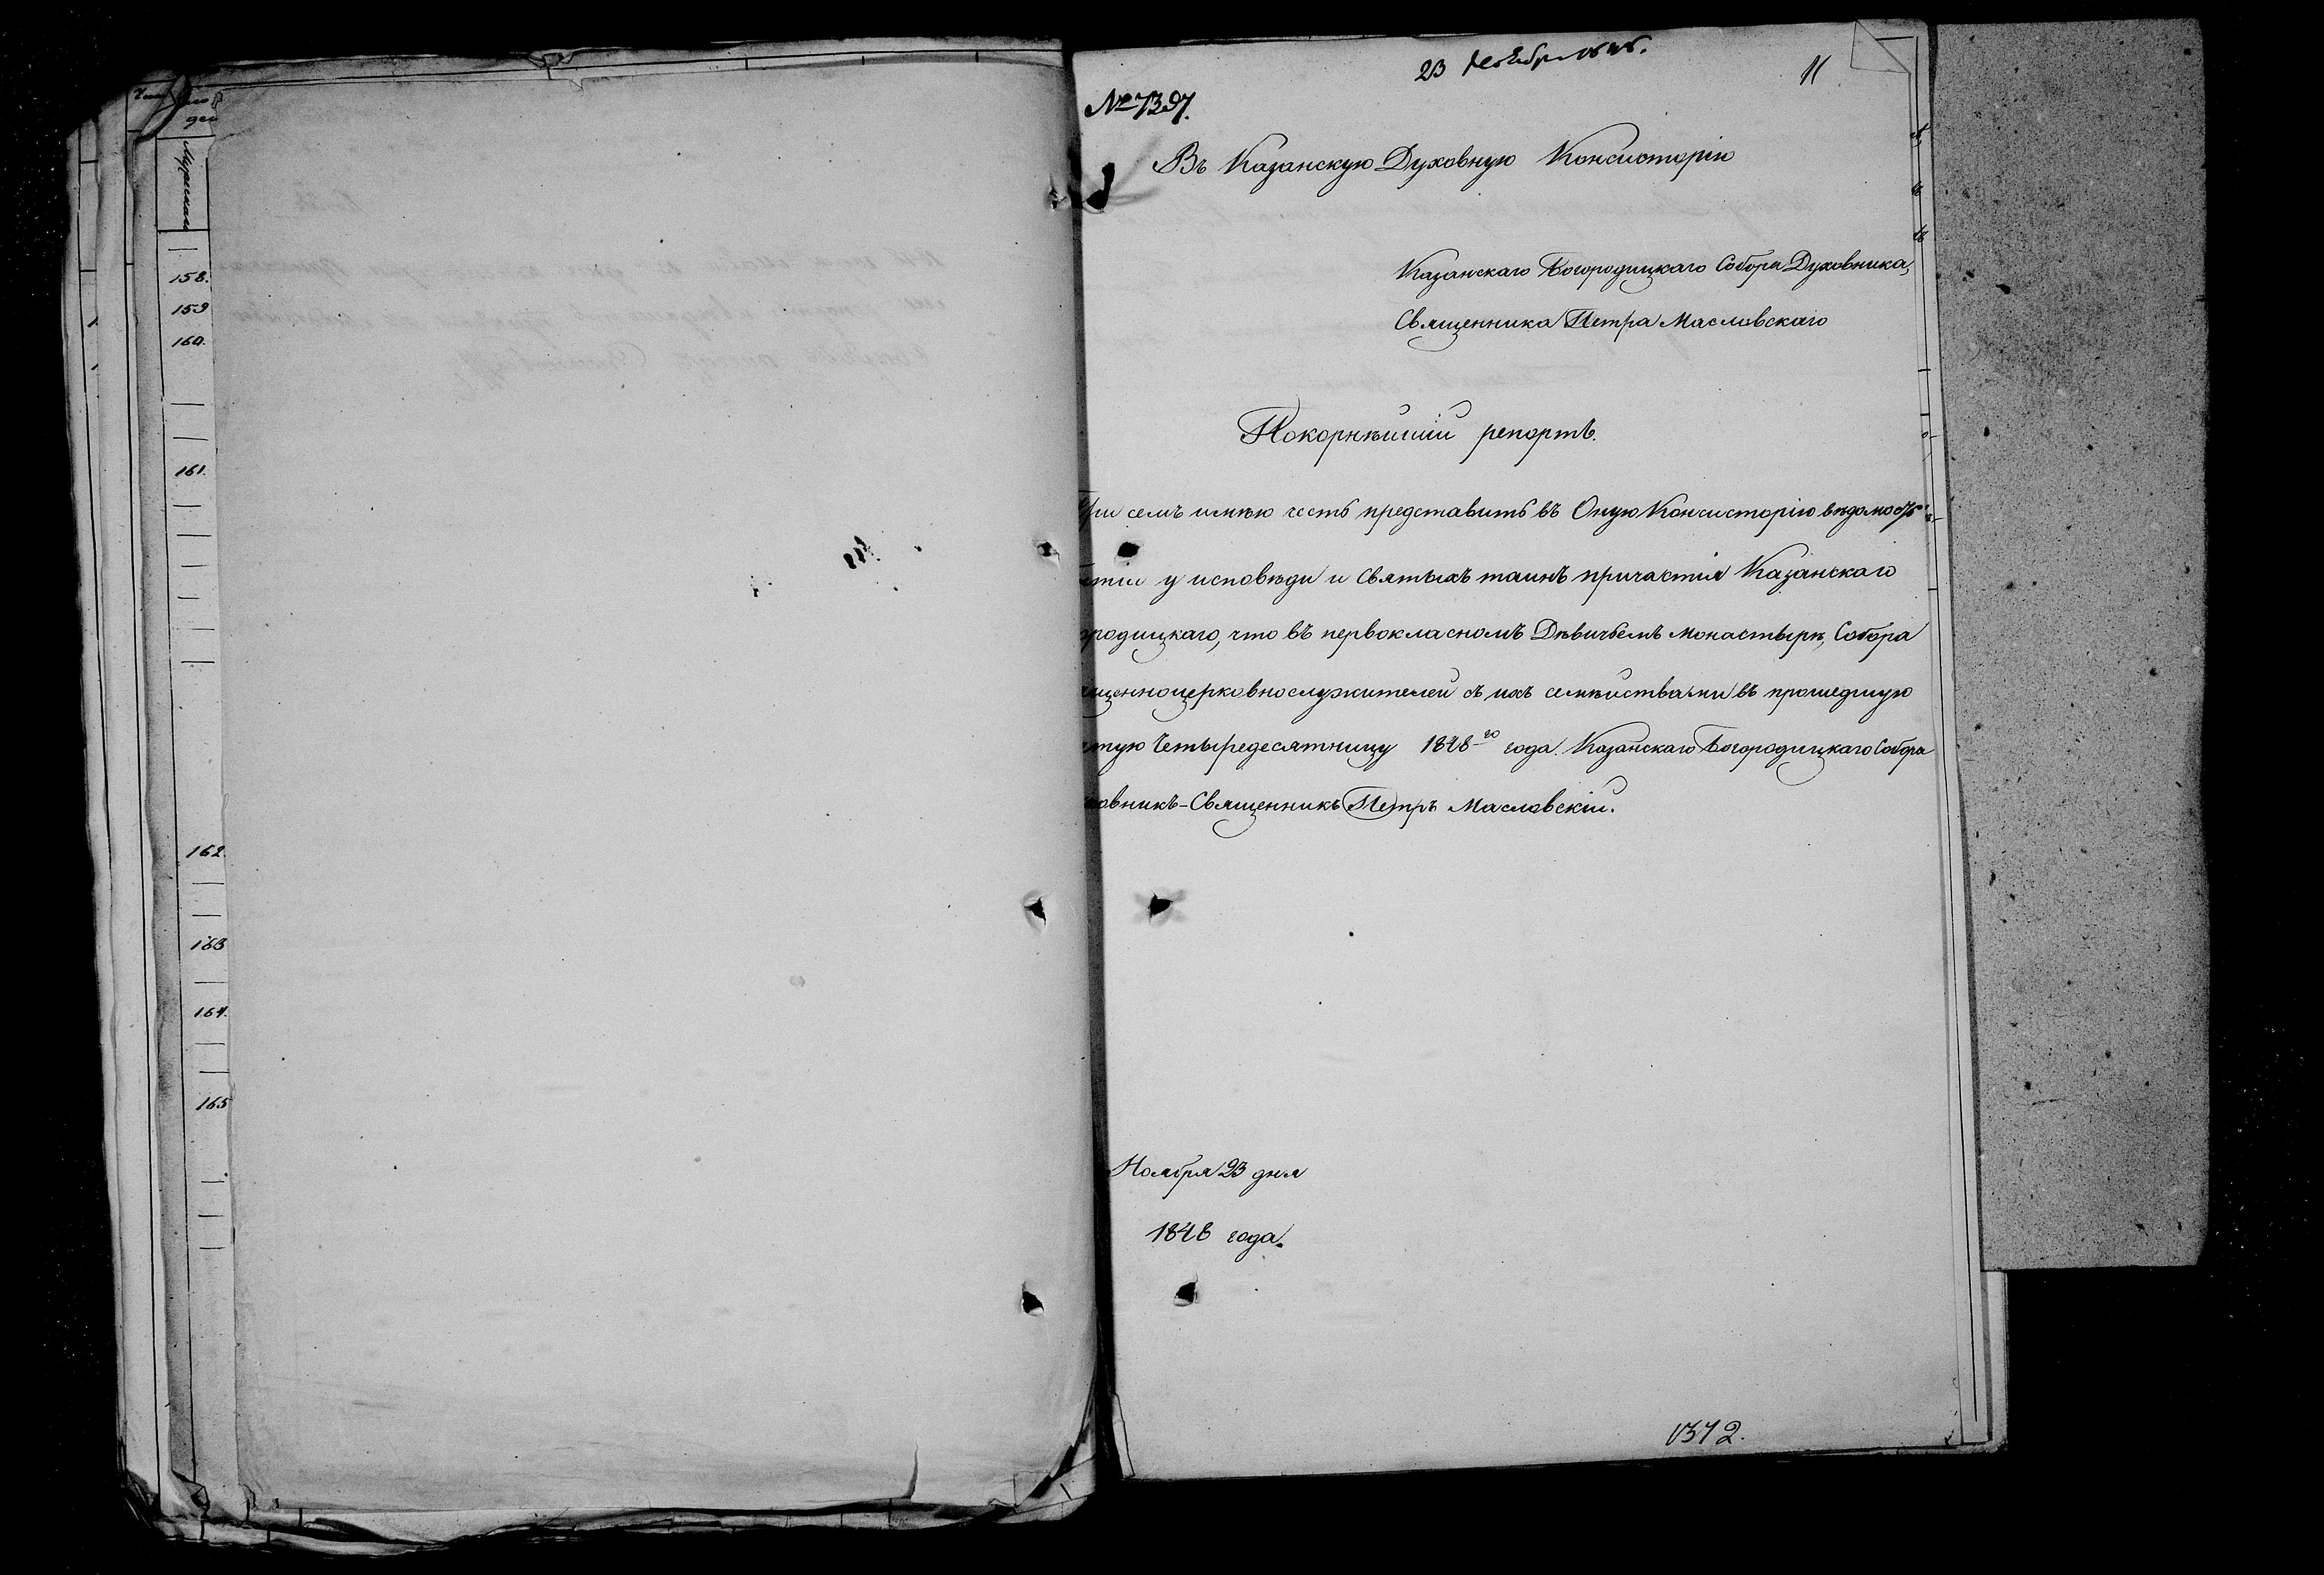 Мужескаго
158.
159
160.
161.
162.
163
164.
165
23 декабря 1848.
11
№ 7397.
Въ Казанскую Духовную Консисторію
Казанскаго Богородицкаго Собора Духовника,
Священника Петра Масловскаго
Покорнѣйшій репортъ.
При семъ имѣю честь представить въ Оную Консисторію вѣдомость
у исповѣди и Святыхъ таинъ причастія Казанскаго
родицкаго, что въ первокласномъ Дѣвичьемъ монастырѣ, Собора
щенноцерковнослужителей съ ихъ семѣйствами въ прошедшую
тую Четыредесятницу 1848-го года. Казанскаго Богородицкаго Собора
овникъ-Священникъ Петръ Масловскій.
Ноября 23 дня
1848 года.
1372.